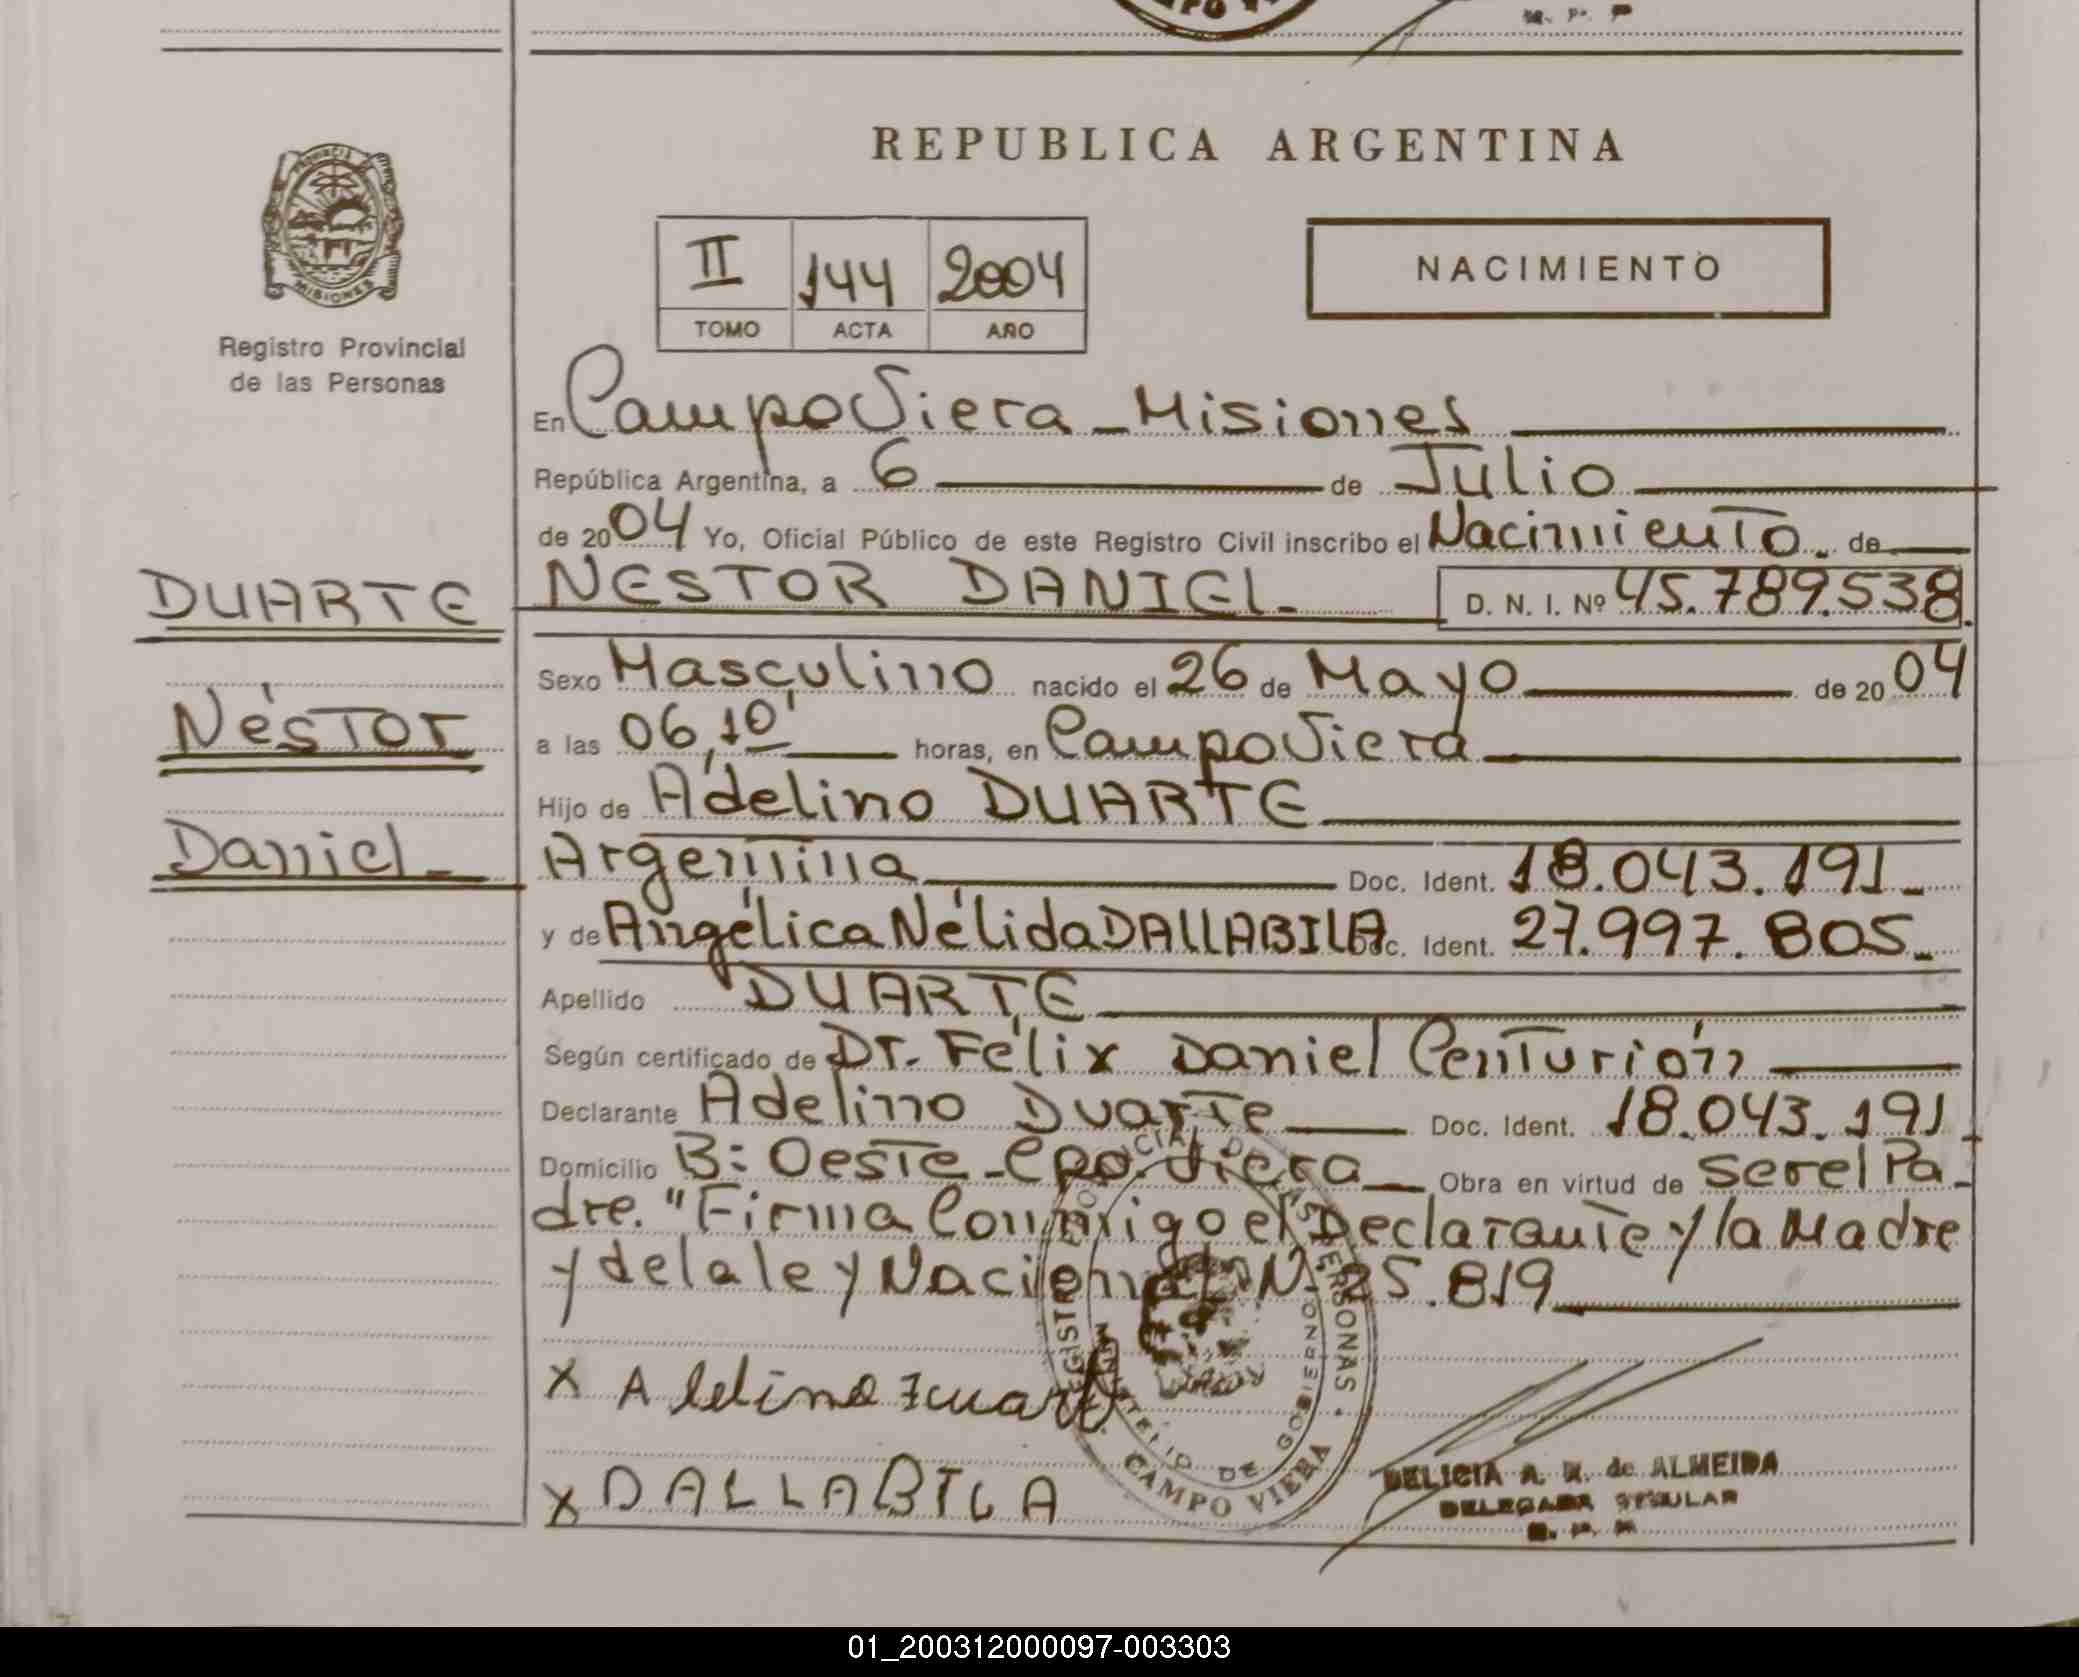 M. P. P
REPUBLICA ARGENTINA
PROVINCIA DE
MISIONES
Registro Provincial
de las Personas
II 144 2004
TOMO ACTA AÑO
NACIMIENTO
En Campo Viera - Misiones
República Argentina, a 6 de Julio
de 2004 Yo, Oficial Público de este Registro Civil inscribo el Nacimiento de
DUARTE
NESTOR DANIEL D. N. I. Nº 45.789.538
Sexo Masculino nacido el 26 de Mayo de 2004
Néstor
a las 06,10' horas, en Campo Viera
Hijo de Adelino DUARTE
Daniel
Argentina Doc. Ident. 18.043.191
y de Angélica Nélida DALLABILA Doc. Ident. 27.997.805
Apellido DUARTE
Según certificado de Dr. Félix Daniel Centurión
Declarante Adelino Duarte Doc. Ident. 18.043.191
Domicilio B: Oeste - Cpo. Viera Obra en virtud de ser el Pa-
dre. "Firma Conmigo el Declarante y la Madre
y de la ley Nacional N. 25.819
X
X DALLABILA
REGISTRO PROVINCIAL DE LAS PERSONAS
MINISTERIO DE GOBIERNO
CAMPO VIERA
DELICIA A. de ALMEIDA
DELEGADA TITULAR
01_200312000097-003303